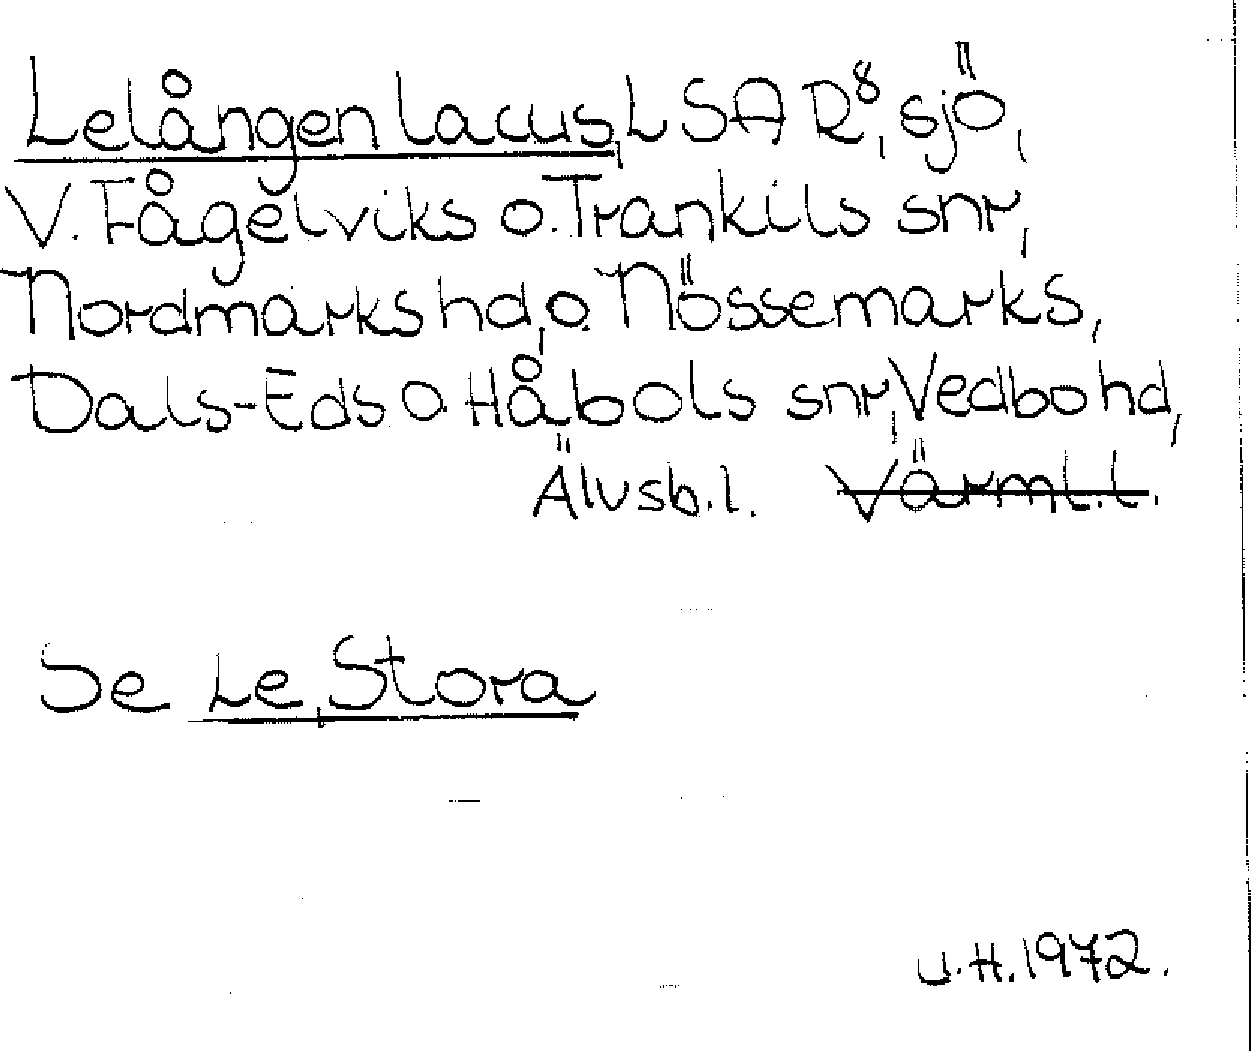 Lelången lacus, LSA R8, sjö,
V. Fågelviks o. Trankils snr,
Nordmarks hd, o. Nössemarks,
Dals-Eds o. Håbols snr, Vedbo hd,
Älvsb. l. Värml. l.
Se Le, Stora
U.H. 1972.